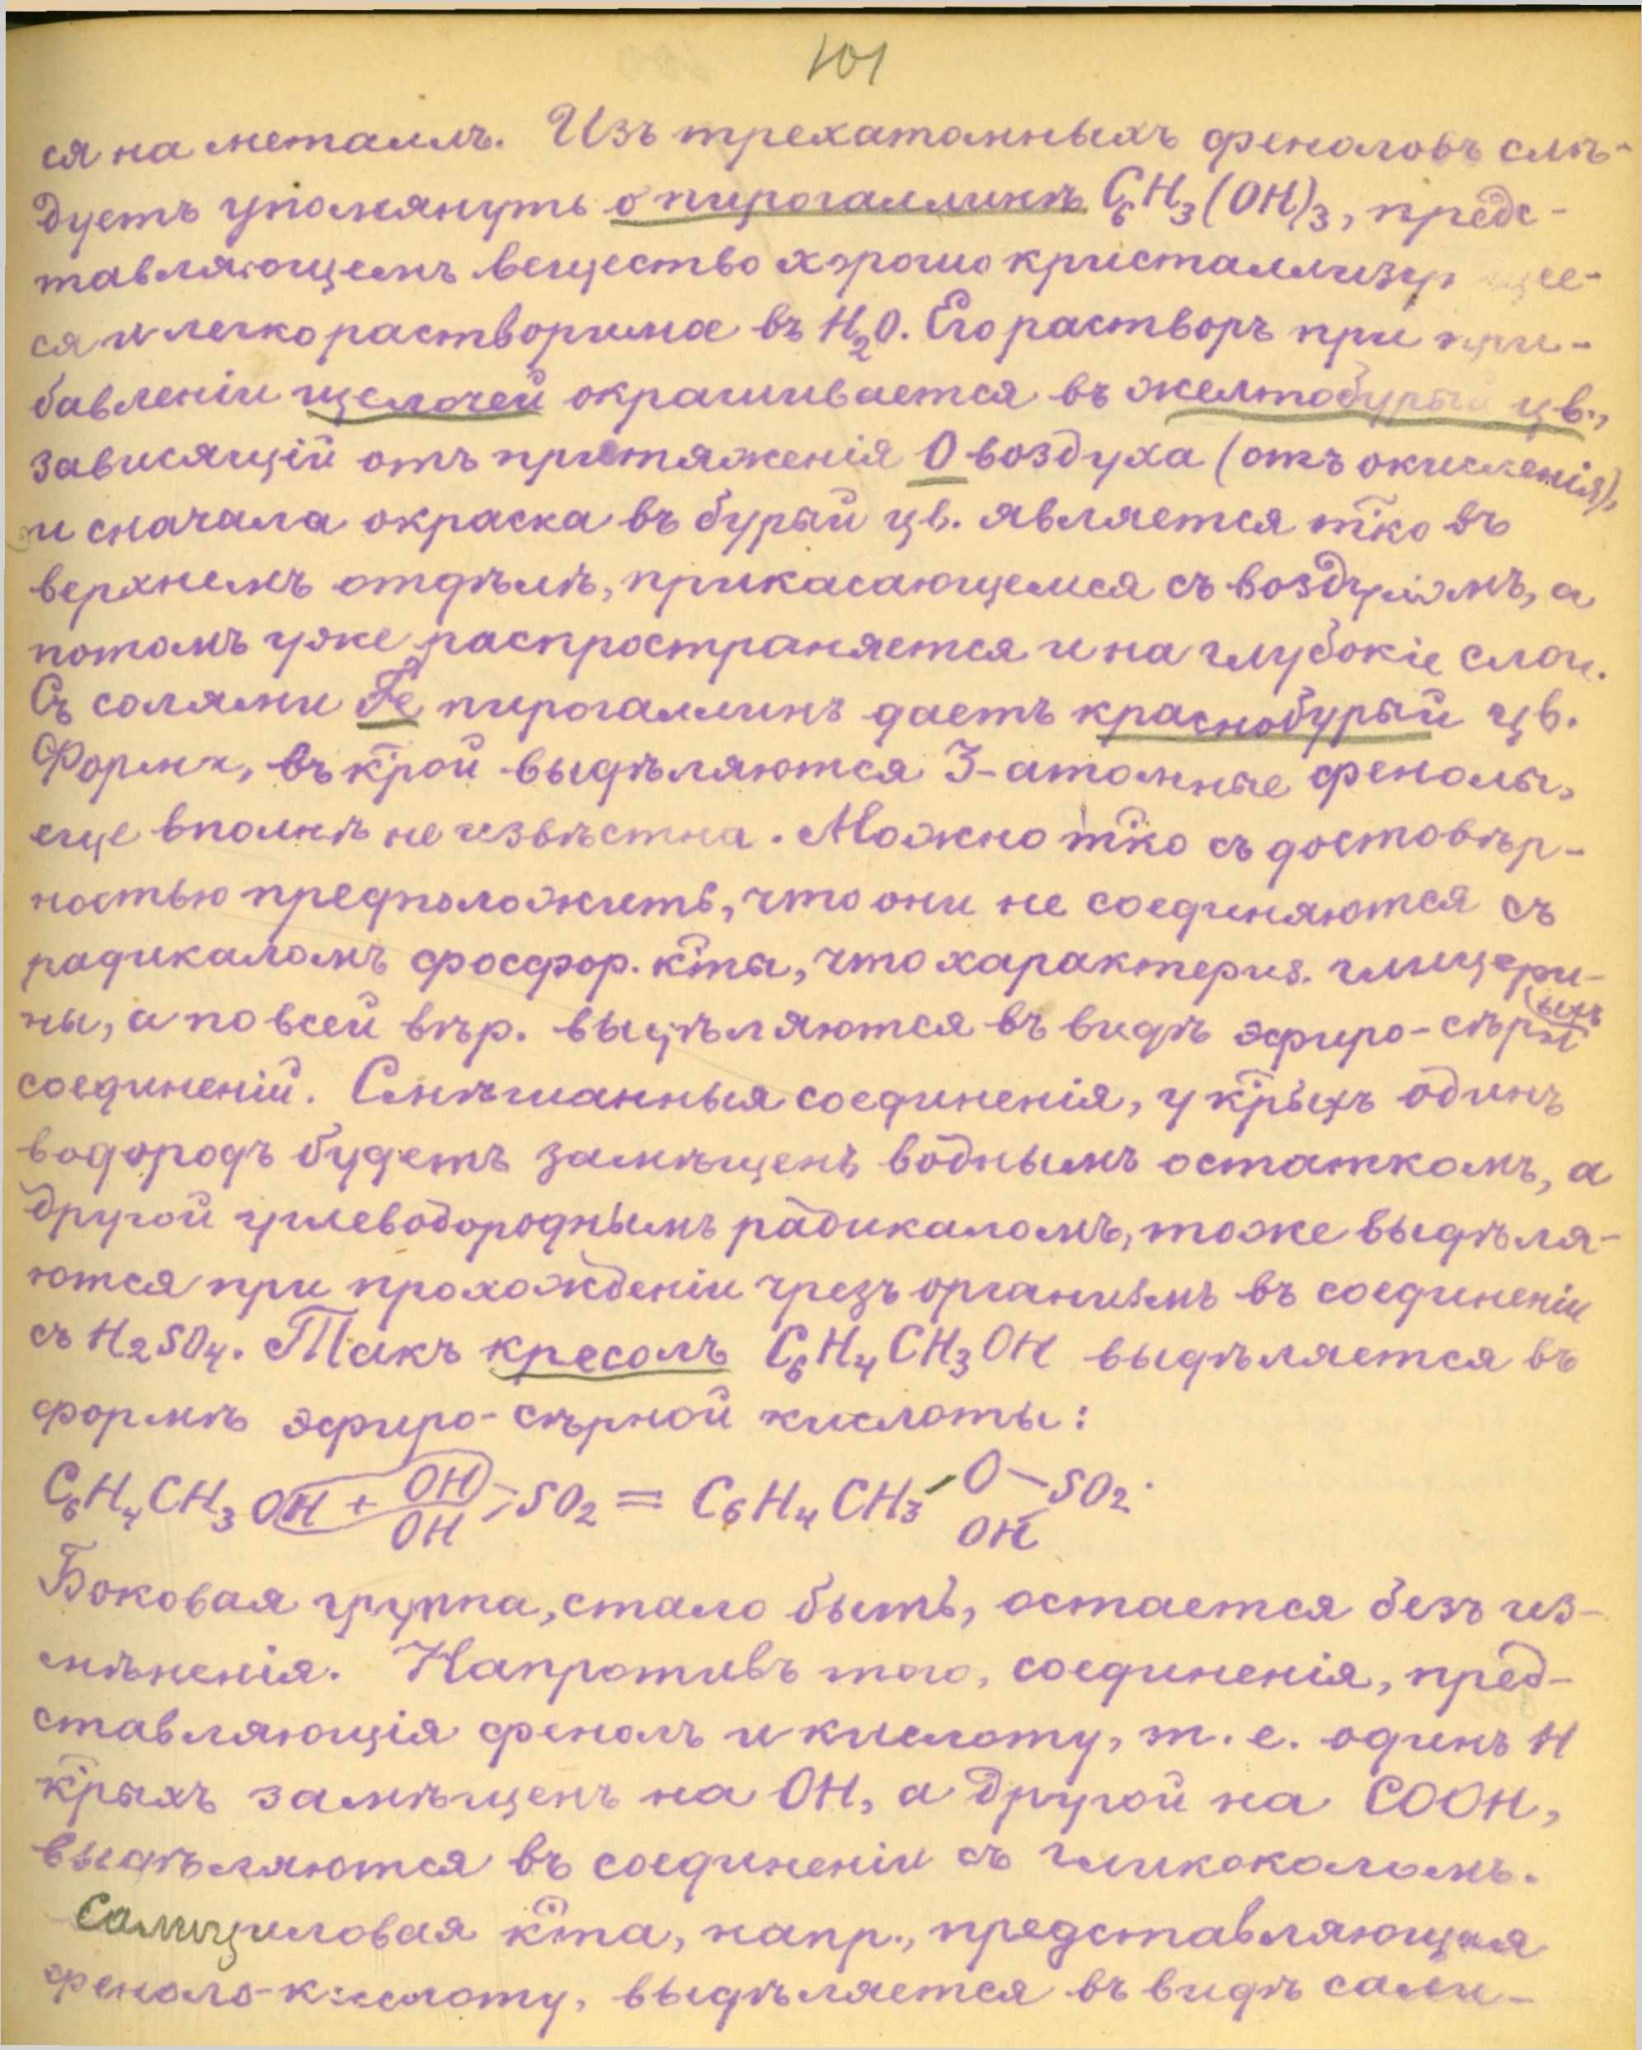 101
ся на металлъ. Изъ трехатомныхъ феноловъ слѣ-
дуетъ упомянуть о пирогаллинѣ C₆H₃(OH)₃, предс-
тавляющемъ вещество хорошо кристаллизующее-
ся и легко растворимое въ H₂O. Его растворъ при при-
бавленіи щелочей окрашивается въ желтобурый цв.,
зависящій отъ притяженія O воздуха (отъ окисленія),
и сначала окраска въ бурый цв. является т̈ко въ
верхнемъ отдѣлѣ, прикасающемся съ воздухомъ, а
потомъ уже распространяется и на глубокіе слои.
Съ солями Fe пирогаллинъ даетъ краснобурый цв.
Форма, въ к̈рой выдѣляются 3-атомные фенолы,
еще вполнѣ не извѣстна. Можно т̈ко съ достовѣр-
ностью предположить, что они не соединяются съ
радикаломъ фосфор. к̈ты, что характериз. глицери-
ны, а по всей вѣр. выдѣляются въ видѣ эфиро-сѣрныхъ
соединеній. Смѣшанныя соединенія, у к̈рыхъ одинъ
водородъ будетъ замѣщенъ воднымъ остаткомъ, а
другой углеводороднымъ радикаломъ, тоже выдѣля-
ются при прохожденіи чрезъ организмъ въ соединеніи
съ H₂SO₄. Такъ кресолъ C₆H₄CH₃OH выдѣляется въ
формѣ эфиро-сѣрной кислоты:
C₆H₄CH₃OH + OH OH >SO₂ = C₆H₄CH₃-O OH -SO₂.
Боковая группа, стало быть, остается безъ из-
мѣненія. Напротивъ того, соединенія, пред-
ставляющія фенолъ и кислоту, т. е. одинъ H
к̈рыхъ замѣщенъ на OH, а другой на COOH,
выдѣляются въ соединеніи съ гликоколомъ.
Салициловая к̈та, напр., представляющая
феноло-кислоту, выдѣляется въ видѣ сали-